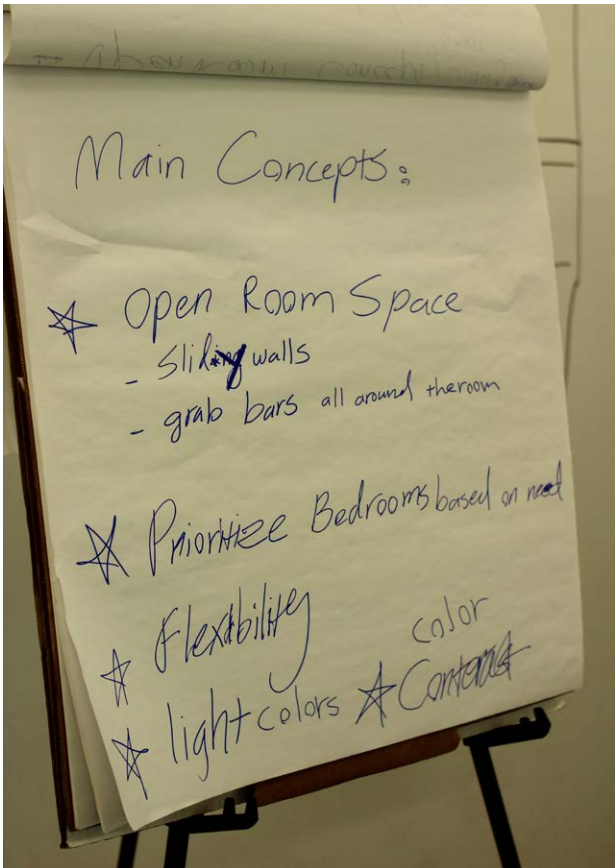 Main Concepts:
☆ Open Room Space
- Sliding walls
- grab bars all around the room
☆ Prioritize Bedrooms based on need
☆ Flexibility
☆ light colors ☆ color Contrast